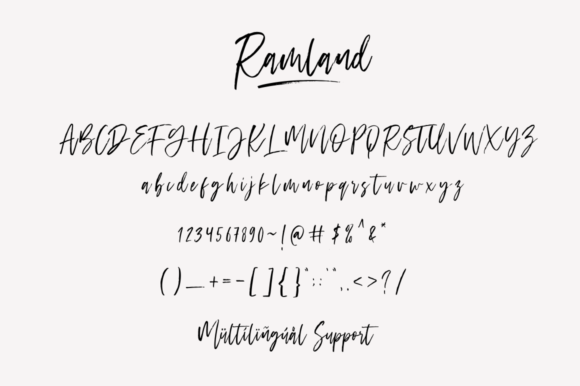 Ramland
ABCDEFGHIJKLMNOPQRSTUVWXYZ
abcdefghijklmnopqrstuvwxyz
1234567890~!@#$%^&*
()_+=-[]{}":;'`,.<>?/
Mültilïñgúål Support